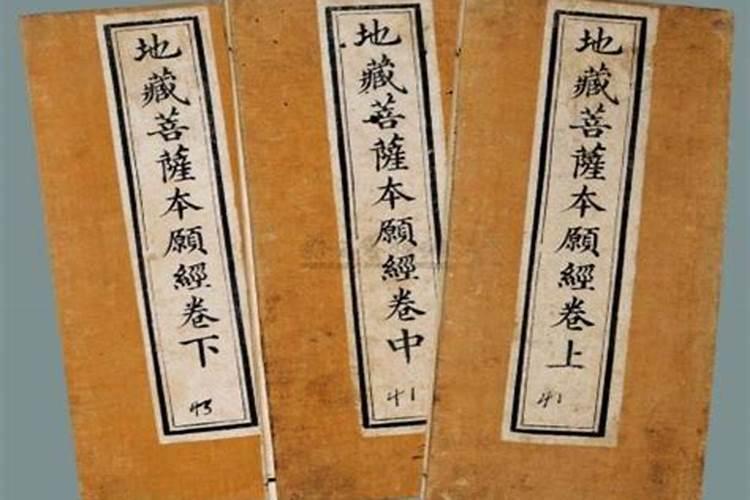 地藏菩薩本願經卷上
41
地藏菩薩本願經卷中
41
地藏菩薩本願經卷下
43